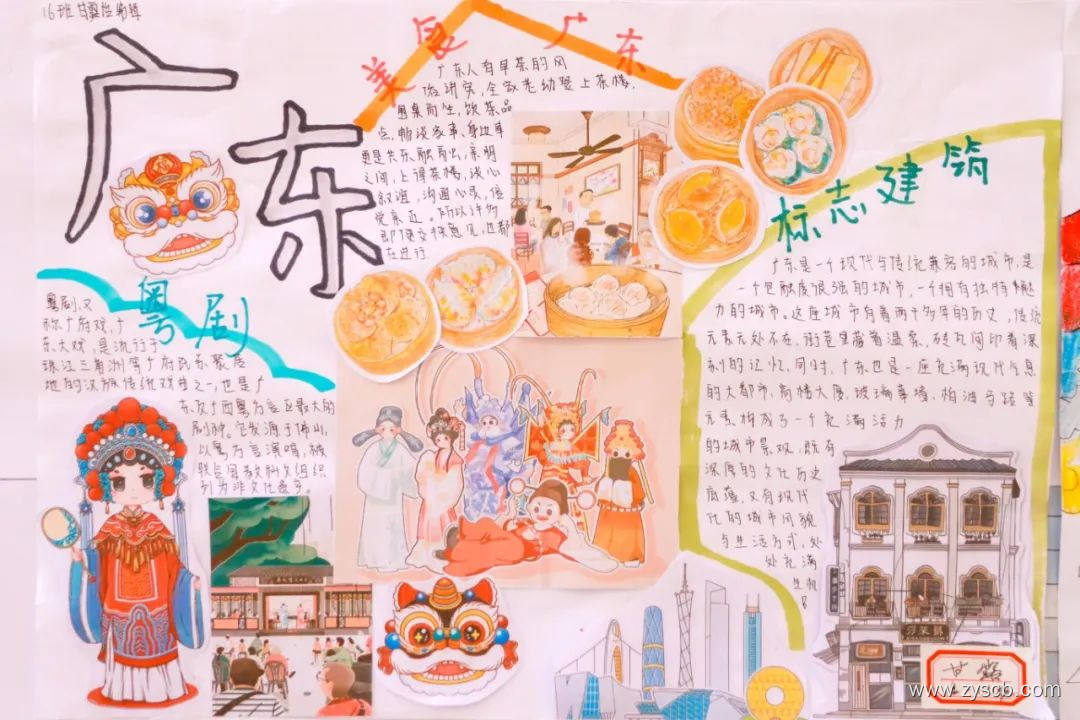 16班
广东
美食广东
广东人有早茶的风
俗讲究,全家老幼登上茶楼,
围桌而坐,饮茶品
点,畅谈家事、身边事
更是共乐融融,亲朋
之间,上得茶楼,谈心
叙谊,沟通心灵,倍
觉亲近。所以许多
即便交换意见,也都
在进行
粤剧
粤剧,又
称广府戏,广
东大戏,是流行于
珠江三角洲等广府民系聚居
地的汉族传统戏曲之一,也是广
东及广西粤方言区最大的
剧种。它发源于佛山,
以粤方言演唱,被
联合国教科文组织
列为非文化遗产。
标志建筑
广东是一个现代与传统兼容的城市,是
一个包融度很强的城市,一个拥有独特魅
力的城市。这座城市有着两千多年的历史,传统
元素无处不在,街巷里藏着温柔,砖瓦间印着深
刻的记忆,同时,广东也是一座充满现代气息
的大都市,高楼大厦、玻璃幕墙、柏油马路等
元素构成了一个充满活力
的城市景观,既有
深厚的文化历史
底蕴,又有现代
化的城市风貌
与生活方式,处
处充满
生机
www.zyscb.com